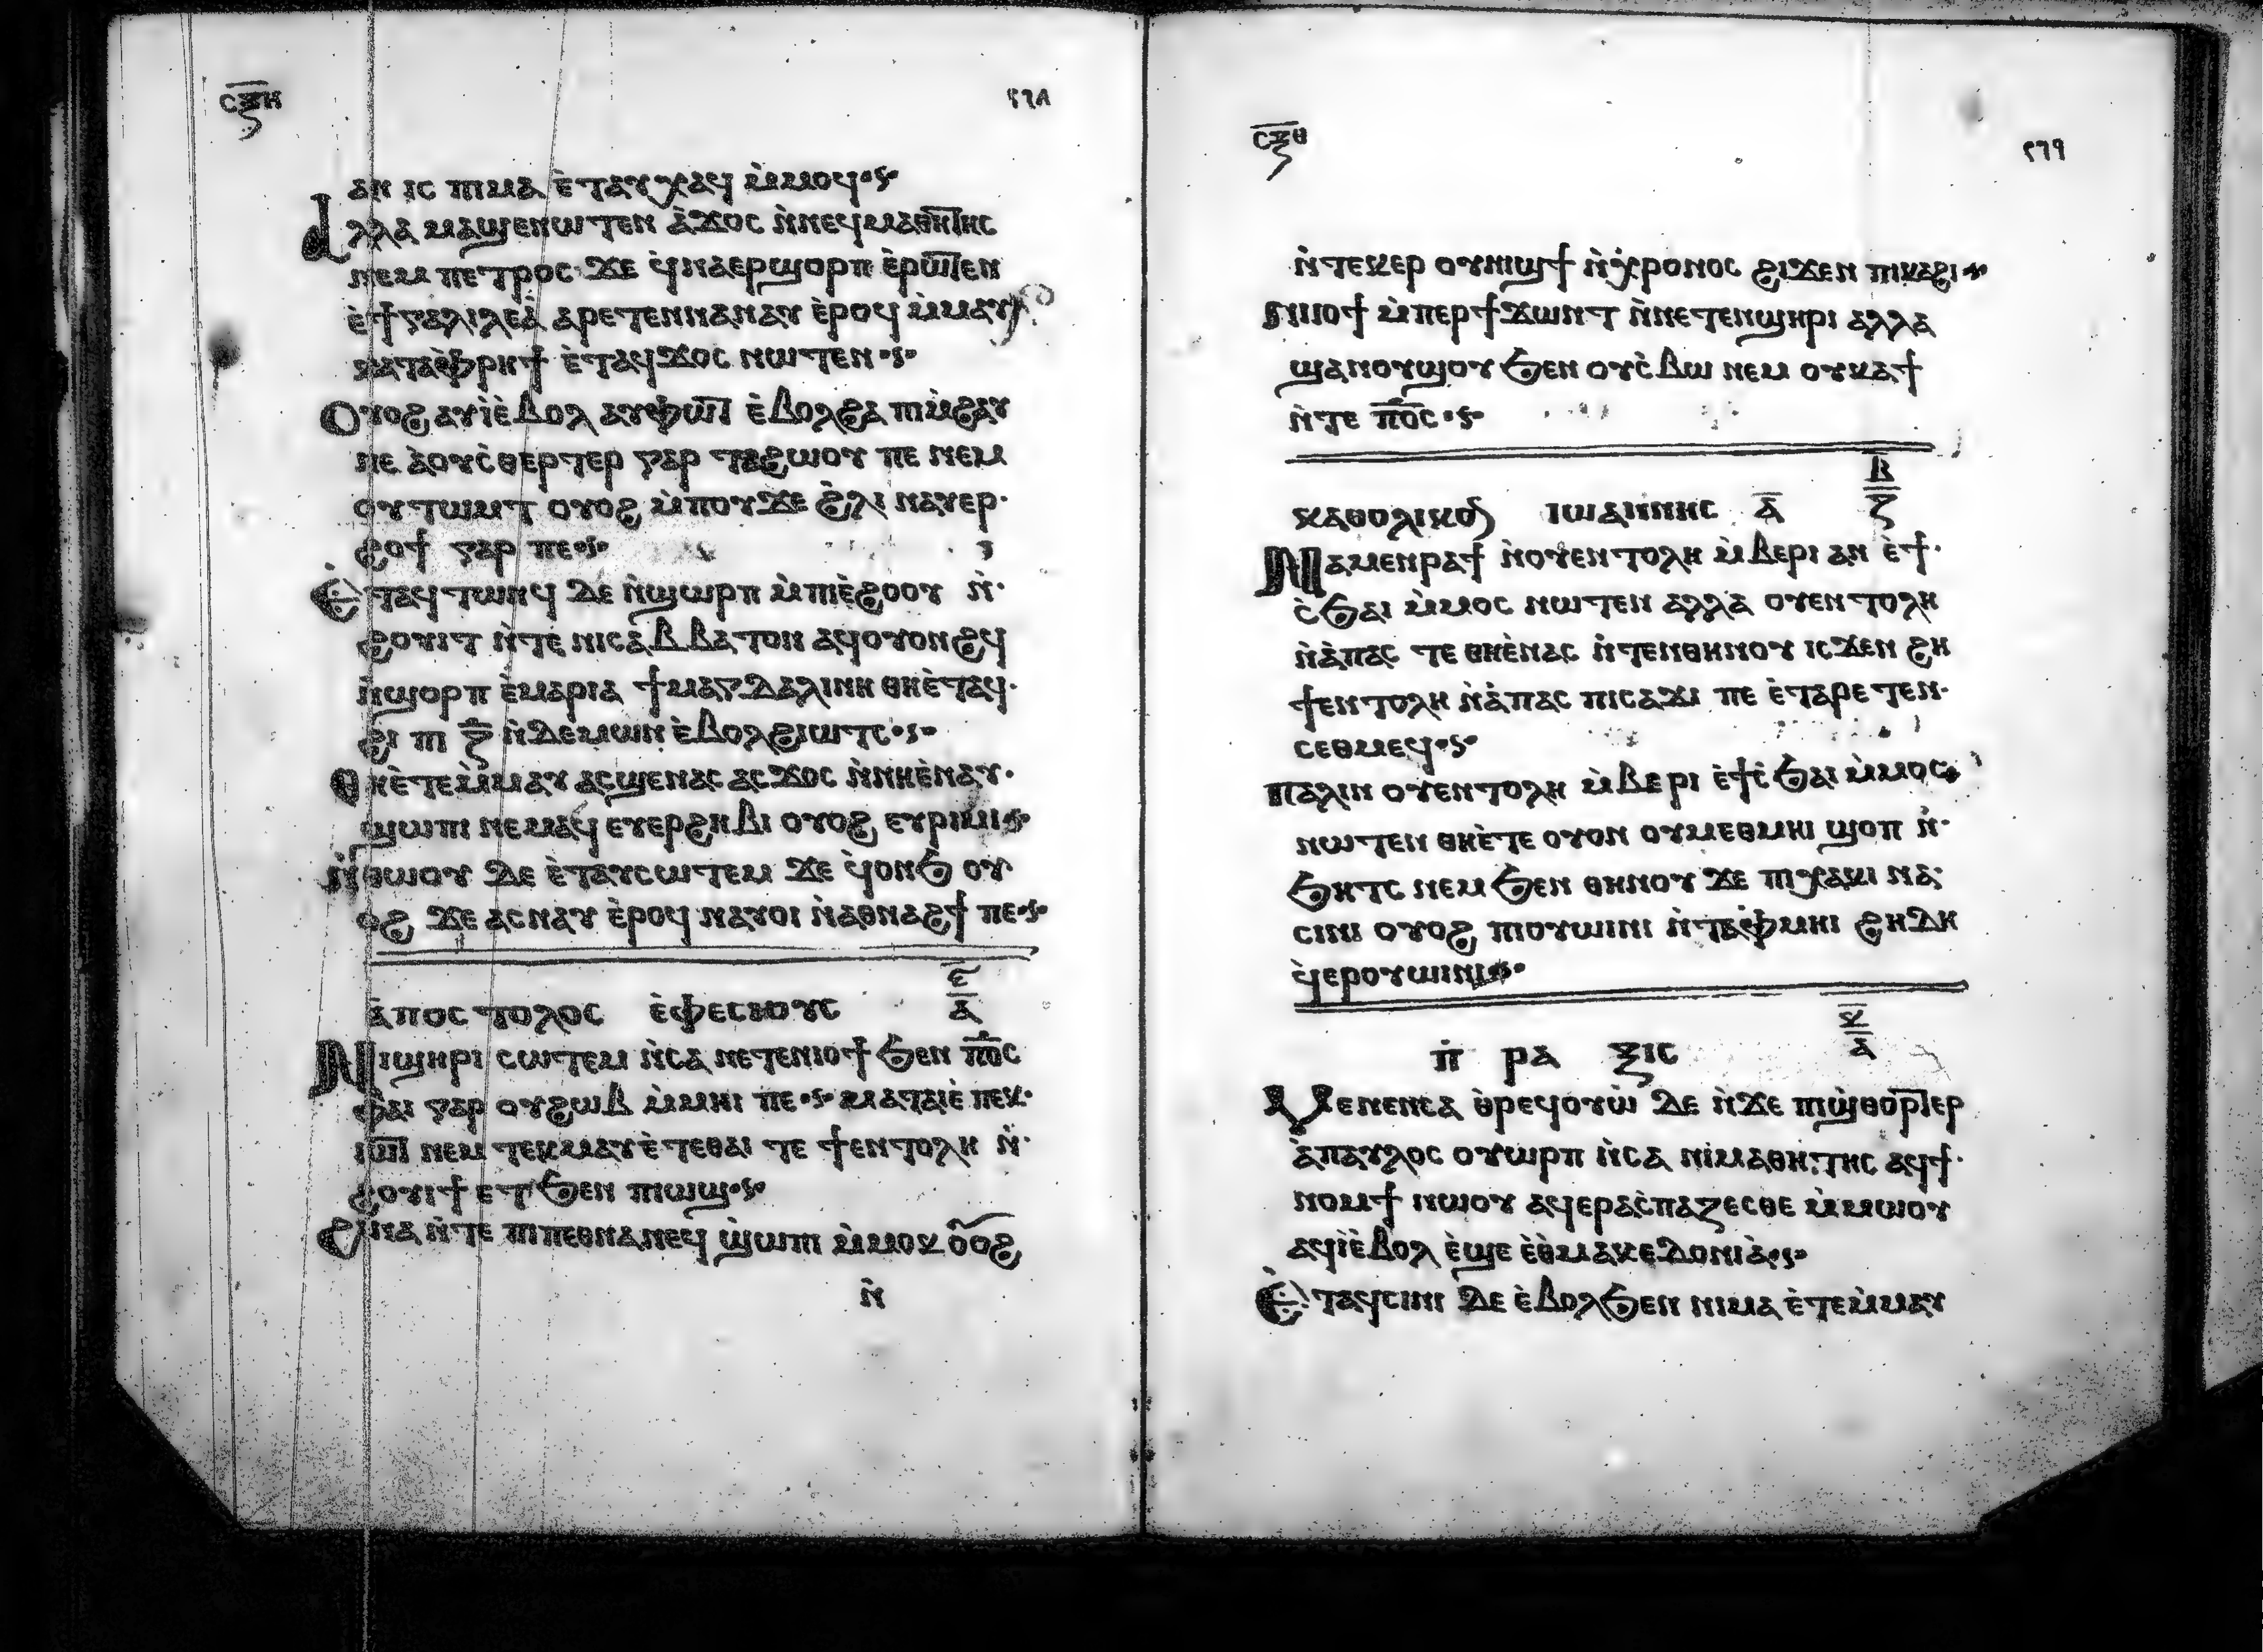 ⲥⲝⲏ ٢٦٨
ⲁⲛ ⲓⲥ ⲡⲓⲙⲁ ⲉ̀ⲧⲁⲩⲭⲁϥ ⲙ̀ⲙⲟϥ·ⲋ·
Ⲁⲗⲗⲁ ⲙⲁϣⲉⲛⲱⲧⲉⲛ ⲁ̀ϫⲟⲥ ⲛ̀ⲛⲉϥⲙⲁⲑⲏⲧⲏⲥ
ⲛⲉⲙ ⲡⲉⲧⲣⲟⲥ ϫⲉ ϥ̀ⲛⲁⲉⲣϣⲟⲣⲡ ⲉ̀ⲣⲱⲧⲉⲛ
ⲉ̀ϯⲅⲁⲗⲓⲗⲉⲁ̀ ⲁⲣⲉⲧⲉⲛⲛⲁⲛⲁⲩ ⲉ̀ⲣⲟϥ ⲙ̀ⲙⲁⲩ
ⲕⲁⲧⲁⲫ̀ⲣⲏϯ ⲉ̀ⲧⲁϥϫⲟⲥ ⲛⲱⲧⲉⲛ·ⲋ·
Ⲟⲩⲟϩ ⲁⲩⲓ̀ⲉ̀ⲃⲟⲗ ⲁⲩⲫⲱⲧ ⲉ̀ⲃⲟⲗϩⲁ ⲡⲓⲙ̀ϩⲁⲩ
ⲡⲉ ⲁ̀ⲟⲩⲥ̀ⲑⲉⲣⲧⲉⲣ ⲅⲁⲣ ⲧⲁϩⲱⲟⲩ ⲡⲉ ⲛⲉⲙ
ⲟⲩⲧⲱⲙⲧ ⲟⲩⲟϩ ⲙ̀ⲡⲟⲩϫⲉ ϩ̀ⲗⲓ ⲛⲁⲩⲉⲣ·
ϩⲟϯ ⲅⲁⲣ ⲡⲉ·ⲋ·
Ⲉ̀ⲧⲁϥⲧⲱⲛϥ ⲇⲉ ⲛ̀ϣⲱⲣⲡ ⲙ̀ⲡⲓⲉ̀ϩⲟⲟⲩ ⲛ̀·
ϩⲟⲩⲓⲧ ⲛ̀ⲧⲉ ⲛⲓⲥⲁⲃⲃⲁⲧⲟⲛ ⲁϥⲟⲩⲟⲛϩϥ
ⲛ̀ϣⲟⲣⲡ ⲉ̀ⲙⲁⲣⲓⲁ ϯⲙⲁⲅⲇⲁⲗⲓⲛⲏ ⲑⲏⲉ̀ⲧⲁϥ·
ϩⲓ ⲡⲓ ⲍ̅ ⲛ̀ⲇⲉⲙⲱⲛ ⲉ̀ⲃⲟⲗϩⲓⲱⲧⲥ·ⲋ·
Ⲑⲏⲉ̀ⲧⲉⲙ̀ⲙⲁⲩ ⲁⲥϣⲉⲛⲁⲥ ⲁⲥϫⲟⲥ ⲛ̀ⲛⲏⲉ̀ⲛⲁⲩ·
ϣⲱⲡⲓ ⲛⲉⲙⲁϥ ⲉⲩⲉⲣϩⲏⲃⲓ ⲟⲩⲟϩ ⲉⲩⲣⲓⲙⲓ·ⲋ·
Ⲛ̀ⲑⲱⲟⲩ ⲇⲉ ⲉ̀ⲧⲁⲩⲥⲱⲧⲉⲙ ϫⲉ ϥ̀ⲟⲛϧ ⲟⲩ·
ⲟϩ ϫⲉ ⲁⲥⲛⲁⲩ ⲉ̀ⲣⲟϥ ⲛⲁⲩⲟⲓ ⲛ̀ⲁⲑⲛⲁϩϯ ⲡⲉ·ⲋ·
ⲁ̀ⲡⲟⲥⲧⲟⲗⲟⲥ ⲉ̀ⲫⲉⲥⲓⲟⲩⲥ ⲋ̅ ⲁ̅
Ⲛⲓϣⲏⲣⲓ ⲥⲱⲧⲉⲙ ⲛ̀ⲥⲁ ⲛⲉⲧⲉⲛⲓⲟϯ ϧⲉⲛ ⲡ̅ⲟ̅ⲥ
ⲫⲁⲓ ⲅⲁⲣ ⲟⲩϩⲱⲃ ⲙ̀ⲙⲏⲓ ⲡⲉ·ⲋ· ⲙⲁⲧⲁⲓⲉ̀ ⲡⲉⲕ·
ⲓⲱⲧ ⲛⲉⲙ ⲧⲉⲕⲙⲁⲩ ⲉ̀ⲧⲉⲑⲁⲓ ⲧⲉ ϯⲉⲛⲧⲟⲗⲏ ⲛ̀·
ϩⲟⲩⲓϯ ⲉⲧϧⲉⲛ ⲡⲓⲱϣ·ⲋ·
Ϩⲓⲛⲁ ⲛ̀ⲧⲉ ⲡⲓⲡⲉⲑⲛⲁⲛⲉϥ ϣ̀ⲱⲡⲓ ⲙ̀ⲙⲟⲕ ⲟⲩⲟϩ
ⲛ̀
ⲥⲝⲑ ٢٦٩
ⲛ̀ⲧⲉⲕⲉⲣ ⲟⲩⲛⲓϣϯ ⲛ̀ⲭ̀ⲣⲟⲛⲟⲥ ϩⲓϫⲉⲛ ⲡⲓⲕⲁϩⲓ·ⲋ·
Ⲛⲓⲓⲟϯ ⲙ̀ⲡⲉⲣϯϫⲱⲛⲧ ⲛ̀ⲛⲉⲧⲉⲛϣⲏⲣⲓ ⲁⲗⲗⲁ
ϣⲁⲛⲟⲩϣⲟⲩ ϧⲉⲛ ⲟⲩⲥ̀ⲃⲱ ⲛⲉⲙ ⲟⲩⲕⲁϯ
ⲛ̀ⲧⲉ ⲡ̅ⲟ̅ⲥ·ⲋ·
ⲕⲁⲑⲟⲗⲓⲕⲟⲛ ⲓⲱⲁⲛⲛⲏⲥ ⲁ̅ ⲃ̅ ⲍ̅
Ⲛⲁⲙⲉⲛⲣⲁϯ ⲛ̀ⲟⲩⲉⲛⲧⲟⲗⲏ ⲙ̀ⲃⲉⲣⲓ ⲁⲛ ⲉ̀ϯ·
ⲥ̀ϧⲁⲓ ⲙ̀ⲙⲟⲥ ⲛⲱⲧⲉⲛ ⲁⲗⲗⲁ ⲟⲩⲉⲛⲧⲟⲗⲏ
ⲛ̀ⲁ̀ⲡⲁⲥ ⲧⲉ ⲑⲏⲉ̀ⲛⲁⲥ ⲛ̀ⲧⲉⲛⲑⲏⲛⲟⲩ ⲓⲥϫⲉⲛ ϩⲏ
ϯⲉⲛⲧⲟⲗⲏ ⲛ̀ⲁ̀ⲡⲁⲥ ⲡⲓⲥⲁϫⲓ ⲡⲉ ⲉ̀ⲧⲁⲣⲉⲧⲉⲛ·
ⲥⲉⲑⲙⲉϥ·ⲋ·
Ⲡⲁⲗⲓⲛ ⲟⲩⲉⲛⲧⲟⲗⲏ ⲙ̀ⲃⲉⲣⲓ ⲉ̀ϯⲥ̀ϧⲁⲓ ⲙ̀ⲙⲟⲥ
ⲛⲱⲧⲉⲛ ⲑⲏⲉ̀ⲧⲉ ⲟⲩⲟⲛ ⲟⲩⲙⲉⲑⲙⲏⲓ ϣⲟⲡ ⲛ̀·
ϧⲏⲧⲥ ⲛⲉⲙ ϧⲉⲛ ⲑⲏⲛⲟⲩ ϫⲉ ⲡⲓⲭⲁⲕⲓ ⲛⲁ·
ⲥⲓⲛⲓ ⲟⲩⲟϩ ⲡⲓⲟⲩⲱⲓⲛⲓ ⲛ̀ⲧⲁⲫ̀ⲙⲏⲓ ϩⲏⲇⲏ
ϥ̀ⲉⲣⲟⲩⲱⲓⲛⲓ·ⲋ·
ⲡ̀ⲣⲁⲝⲓⲥ ⲕ̅ ⲁ̅
Ⲙⲉⲛⲉⲛⲥⲁ ⲑ̀ⲣⲉϥⲟⲩⲱ̀ ⲇⲉ ⲛ̀ϫⲉ ⲡⲓϣ̀ⲑⲟⲣⲧⲉⲣ
ⲁ̀ⲡⲁⲩⲗⲟⲥ ⲟⲩⲱⲣⲡ ⲛ̀ⲥⲁ ⲛⲓⲙⲁⲑⲏⲧⲏⲥ ⲁϥϯ·
ⲛⲟⲙϯ ⲛⲱⲟⲩ ⲁϥⲉⲣⲁⲥ̀ⲡⲁⲍⲉⲥⲑⲉ ⲙ̀ⲙⲱⲟⲩ
ⲁϥⲓ̀ⲉ̀ⲃⲟⲗ ⲉ̀ϣⲉ ⲉ̀ⲑ̀ⲙⲁⲕⲉⲇⲟⲛⲓⲁ̀·ⲋ·
Ⲉ̀ⲧⲁϥⲥⲓⲛⲓ ⲇⲉ ⲉ̀ⲃⲟⲗϧⲉⲛ ⲛⲓⲙⲁ ⲉ̀ⲧⲉⲙ̀ⲙⲁⲩ